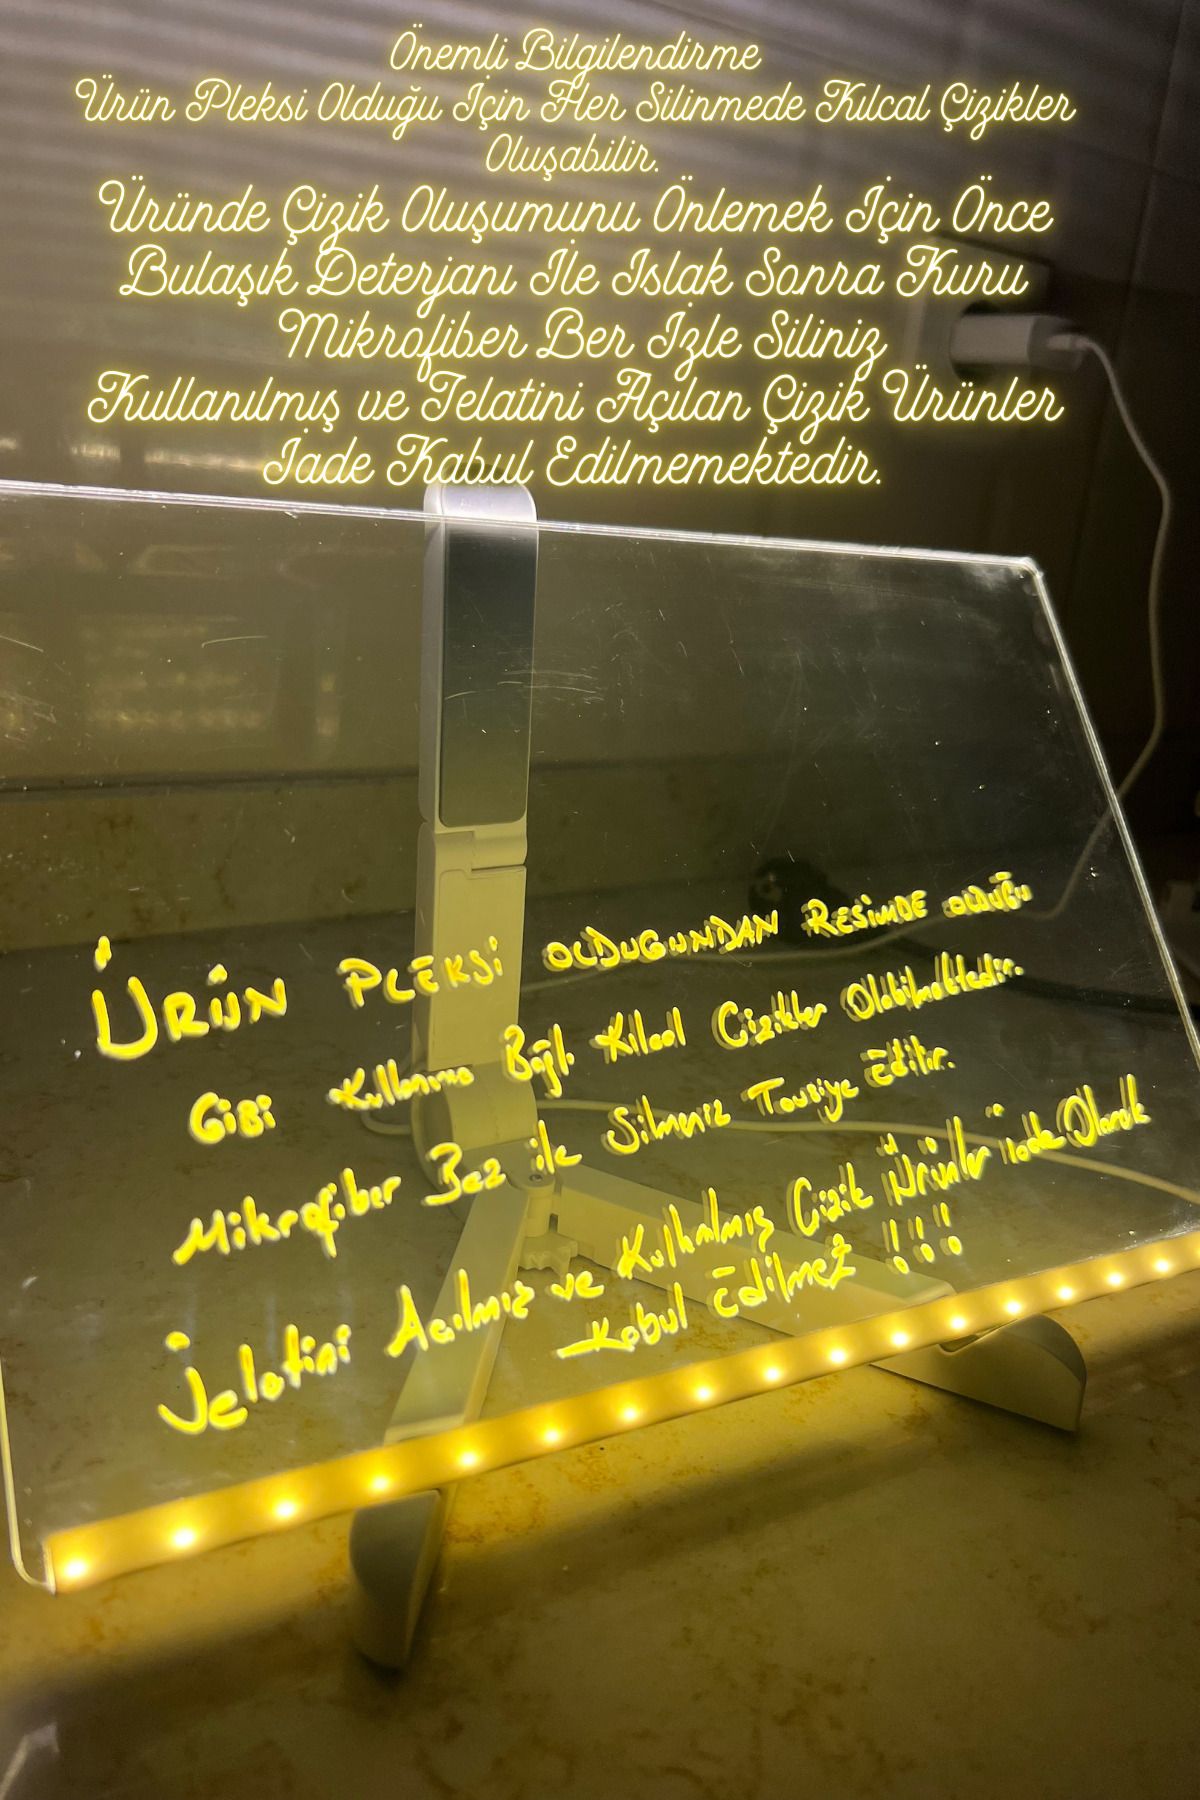 Önemli Bilgilendirme
Ürün Pleksi Olduğu İçin Her Silinmede Kılcal Çizikler
Oluşabilir.
Üründe Çizik Oluşumunu Önlemek İçin Önce
Bulaşık Deterjanı İle Islak Sonra Kuru
Mikrofiber Ber İzle Siliniz
Kullanılmış ve Jelatini Açılan Çizik Ürünler
İade Kabul Edilmemektedir.
ÜRÜN PLEKSİ OLDUGUNDAN RESİMDE OLDUĞU
GİBİ Kullanıma Bağlı Kılcal Çizikler Olabilmektedir.
Mikrofiber Bez ile Silmeniz Tavsiye Edilir.
Jelatini Açılmış ve Kullanılmış Çizik Ürünler iade Olarak
Kabul Edilmez !!!